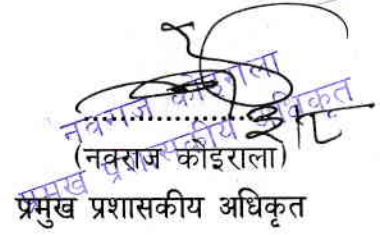 नवराज कोइराला
प्रमुख प्रशासकीय अधिकृत
....................
(नवराज कोइराला)
प्रमुख प्रशासकीय अधिकृत